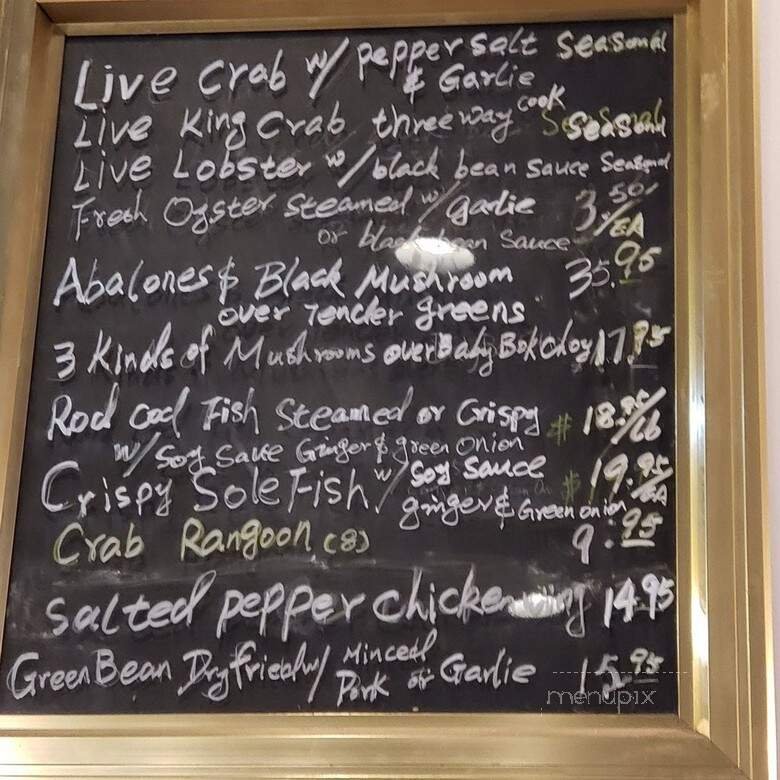 Live Crab w/ pepper salt Seasonal
& Garlie
Live King Crab three way cook Seasonal
Live Lobster w/ black bean sauce Seasonal
Fresh Oyster Steamed w/ garlie 3.50/EA
or black bean Sauce
Abalones & Black Mushroom 35.95
over Tender greens
3 Kinds of Mushrooms over Baby Bok choy 17.95
Rod Cod Fish Steamed or Crispy $18.95/Lb
w/ Soy Sauce Ginger & green Onion
Crispy Sole Fish w/ Soy Sauce $19.95/EA
ginger & Green onion
Crab Rangoon (8) 9.95
Salted pepper chicken wing 14.95
Green Bean Dry fried w/ Minced Pork or Garlie 15.95
menupix